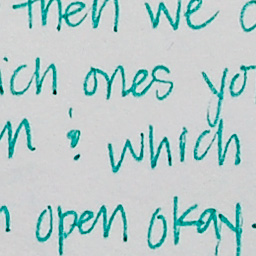 then we
ich ones yo
n & which
n open okay.